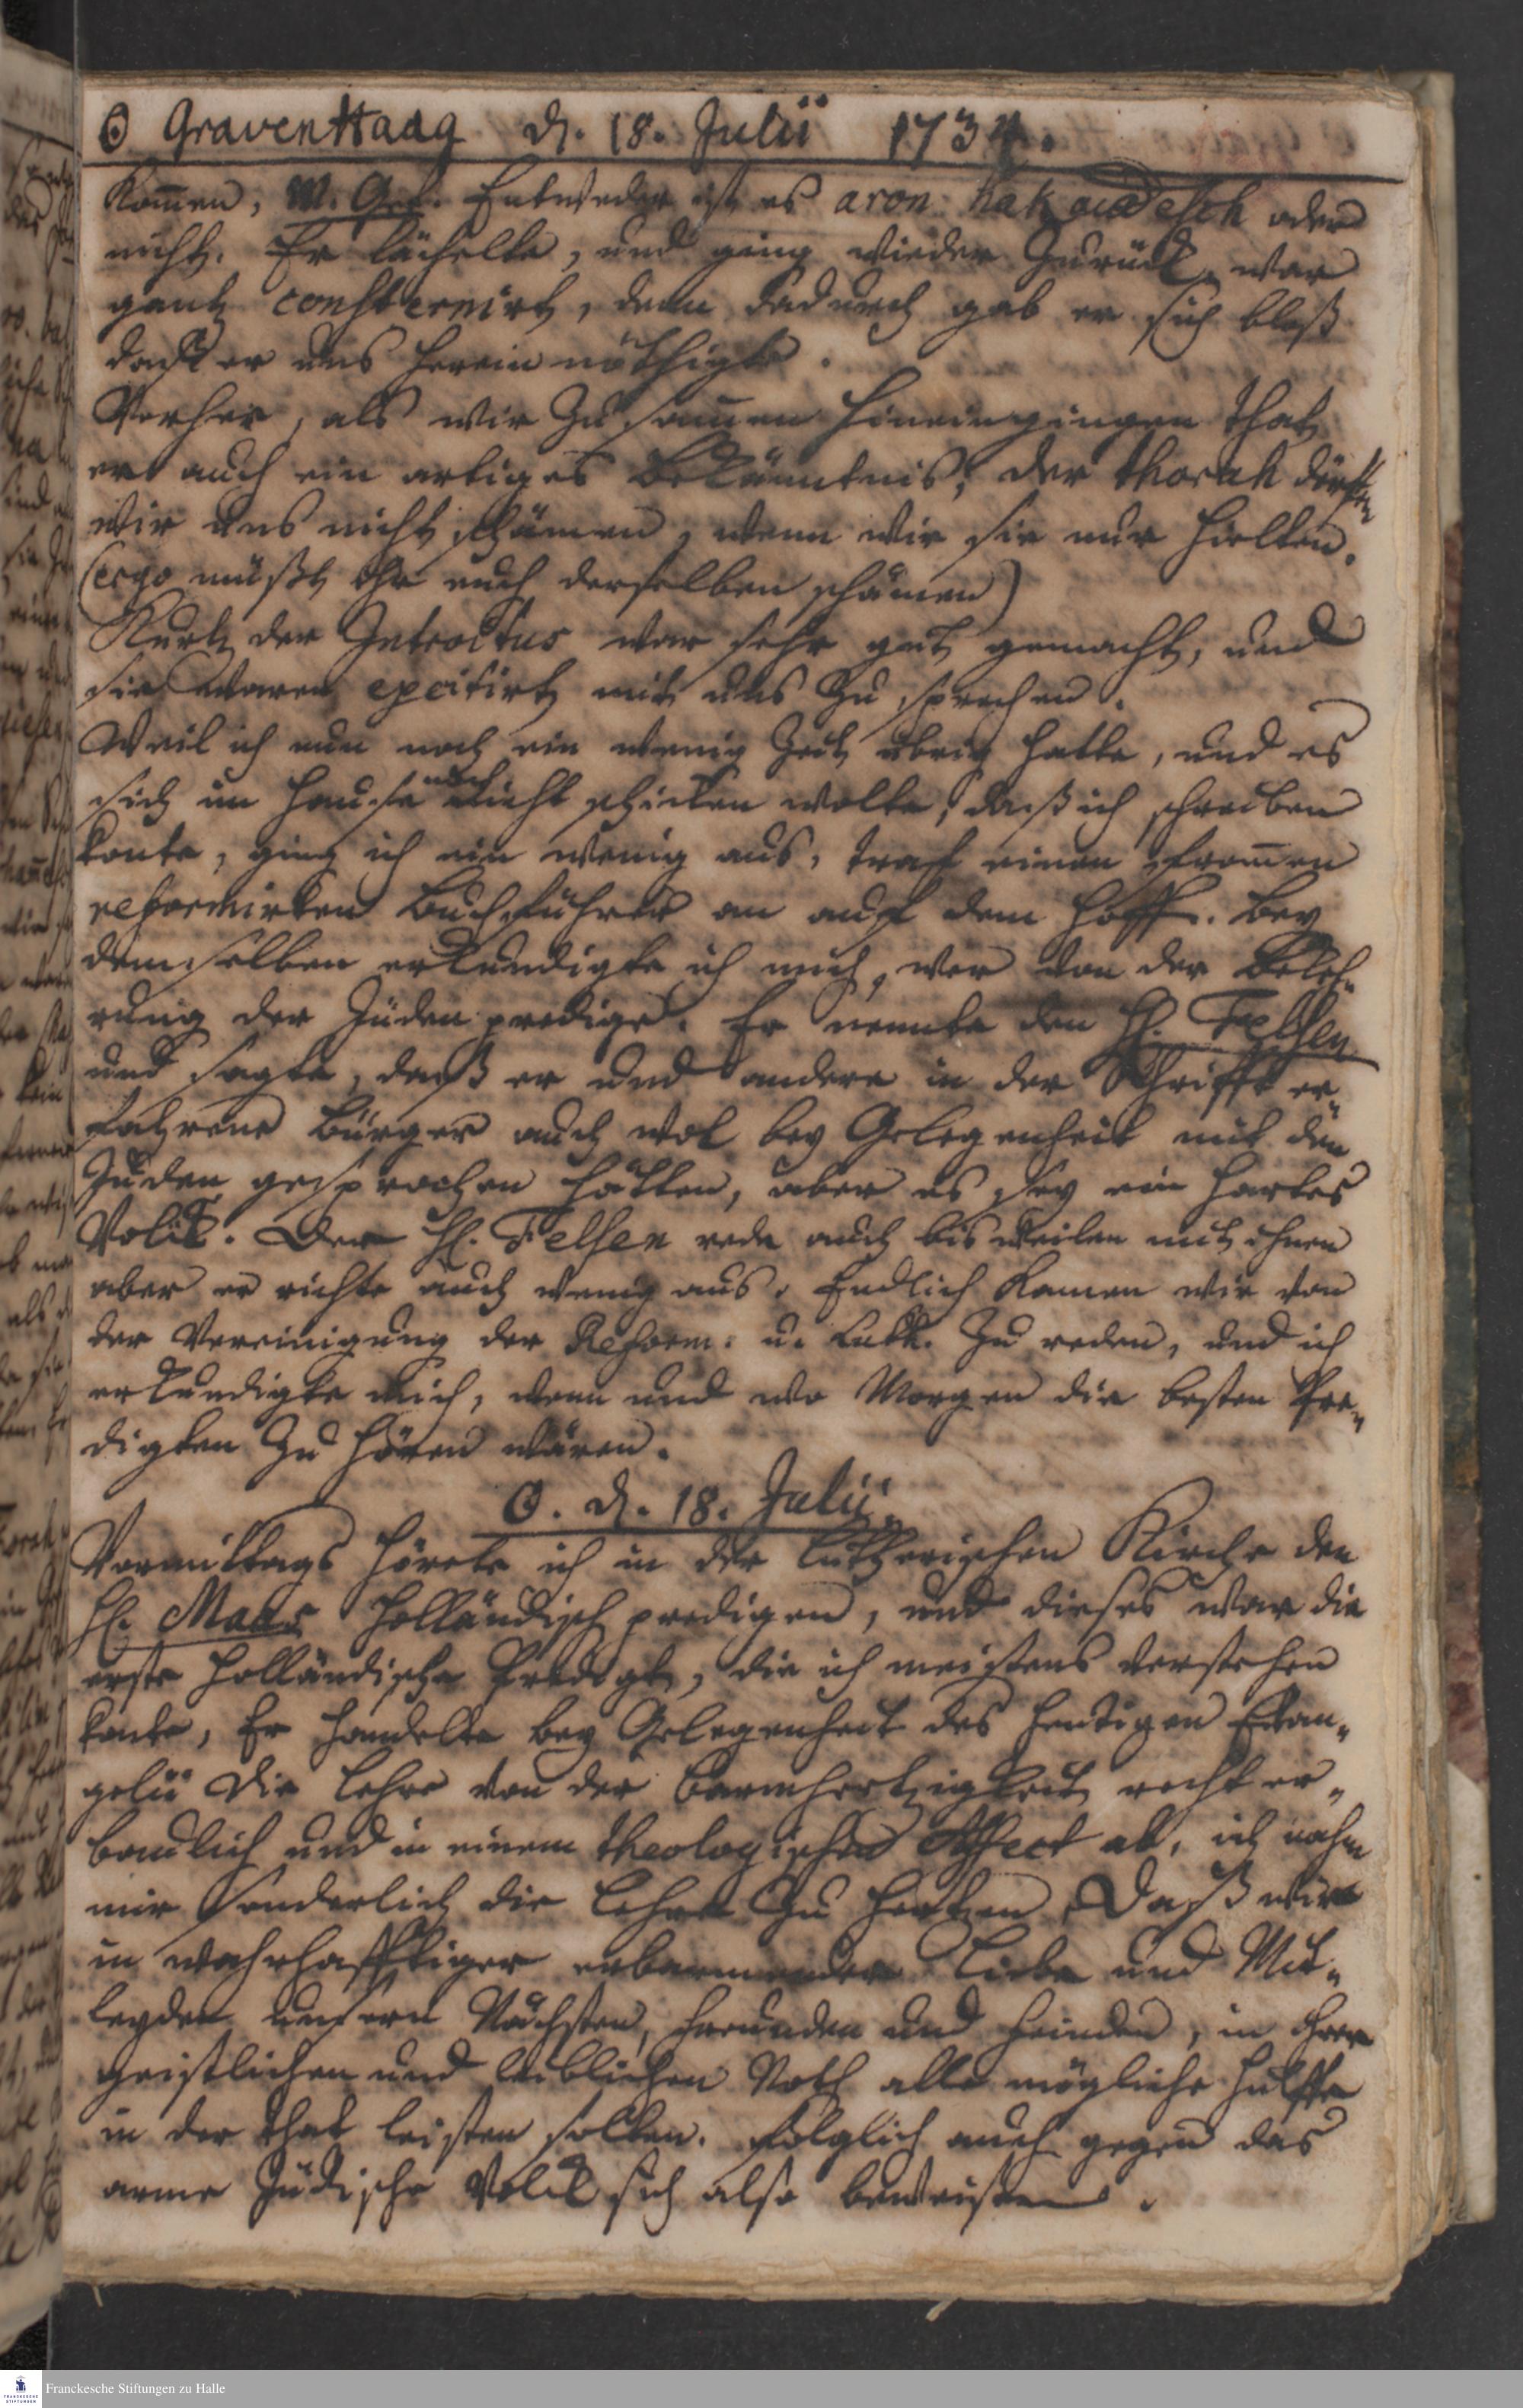 ☉ GravenHaag d. 18. Julii 1734.
kom̅en, M. Gef. Entweder ist es aron hakaudesch oder
nicht. Er lächelte, und ging wieder zurück, war
gantz consternirt, denn dadurch gab er sich bloß
daß er uns herein nöthigte.
Vorher, als wir zusam̅en hineingingen that
er auch ein artiges Bekäntnis, der thorah dörfften
wir uns nicht schämen, wenn wir sie nur hielten.
(ergo müßt ihr euch derselben schämen)
Kurtz der Introitus war sehr gut gemacht, und
sie waren excitirt mit uns zu sprechen.
Weil ich nun noch ein wenig Zeit übrig hatte, und es
sich im Hause noch nicht schicken wolte, daß ich schreiben
konte, ging ich ein wenig aus, traf einen from̅en
reformirten Buchführer an auf dem Hoff. Bey
demselben erkundigte ich mich, wer von der Bekeh-
rung der Jüden predige. Er nennte den H. Felsen
und sagte, daß er und andere in der Schrifft er-
fahrene Bürger auch wol bey Gelegenheit mit den
Juden gesprochen hätten, aber es sey ein hartes
Volck. Der H. Felsen rede auch bisweilen mit ihnen
aber er richte auch wenig aus. Endlich kamen wir von
der Vereinigung der Reform. u. Luth. zu reden, und ich
erkundigte mich, wenn und wo Morgen die besten Pre-
digten zu hören wären.
☉. d. 18. Julii.
Vormittags hörete ich in der Lutherischen Kirche den
H. Maas Holländisch predigen, und dieses war die
erste Holländische Predigt, die ich meistens verstehen
konte, Er handelte bey Gelegenheit des heutigen Evan-
gelii die Lehre von der Barmhertzigkeit recht er-
baulich und in einem theologischen Affect ab, ich nahm
mir sonderlich die Lehre zu Hertzen, Daß wir
in wahrhafftiger erbarmender Liebe und Mit-
leyden unsern Nächsten, Freunden und Feinden, in ihrer
geistlichen und leiblichen Noth alle mögliche Hülffe
in der That leisten solten. Folglich auch gegen das
arme Jüdische Volck sich also beweisen.
Franckesche Stiftungen zu Halle